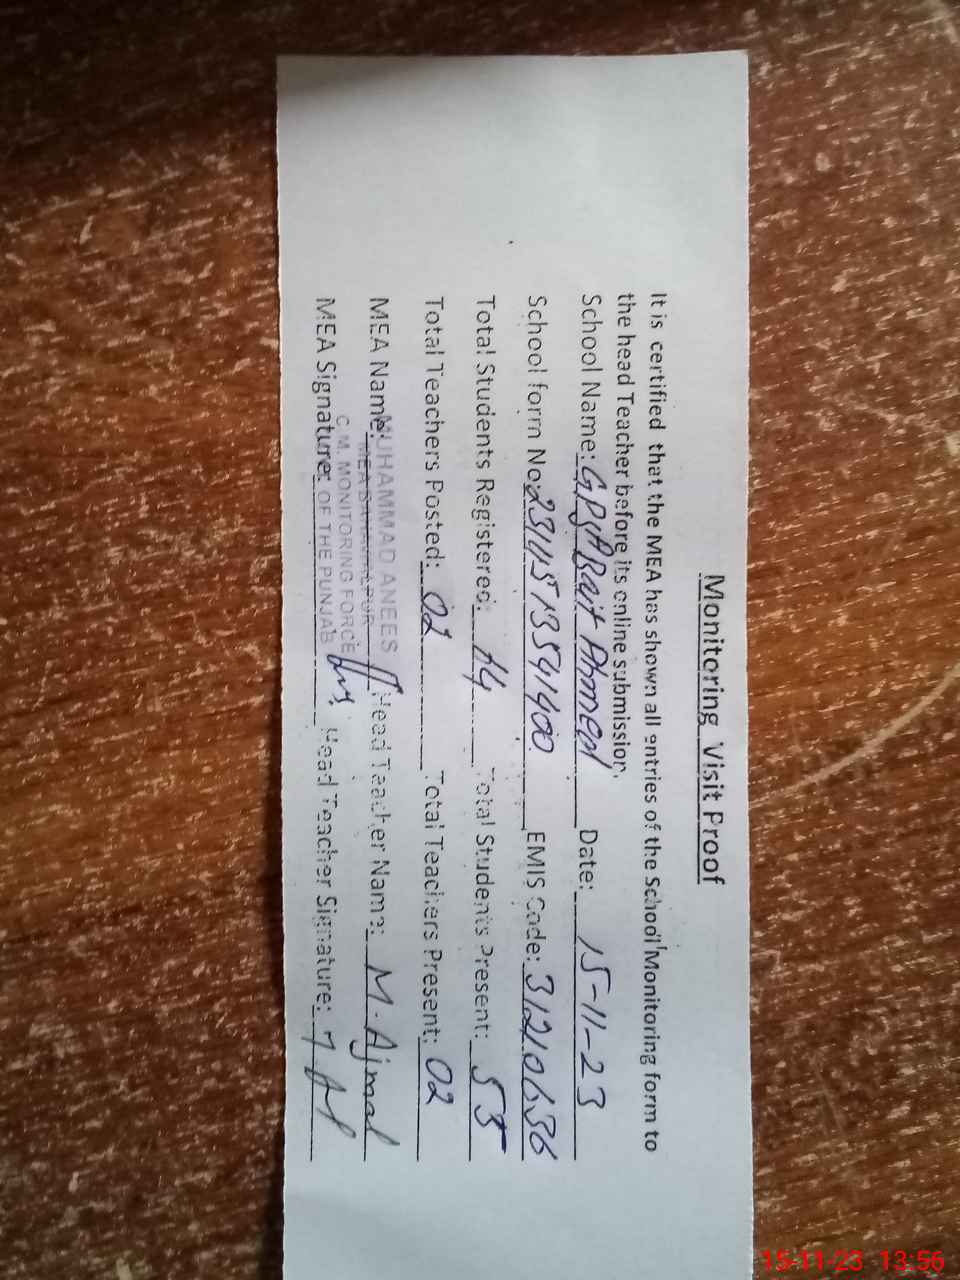 Monitoring Visit Proof
It is certified that the MEA has shown all entries of the School Monitoring form to
the head Teacher before its online submission.
School Name: Ahmed Date: 15-11-23
School form No: EMIS Code: 31210636
Total Students Registered: Total Students Present: 53
Total Teachers Posted: 02 Total Teachers Present: 02
MEA Name: MUHAMMAD ANEES Head Teacher Name: M. Ajmal
MEA BAHAWALPUR
C.M. MONITORING FORCE
MEA Signature: OF THE PUNJAB Head Teacher Signature:
15-11-23 13:56